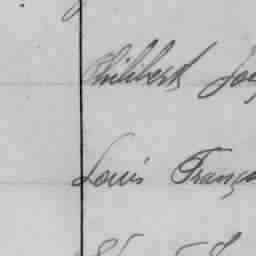 Philibert Jo
Louis Franç